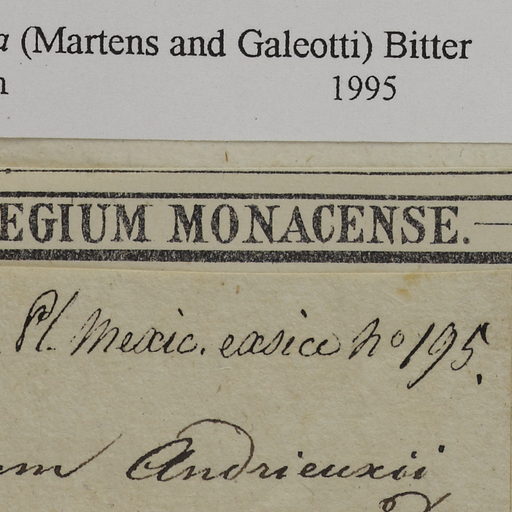 a (Martens and Galeotti) Bitter
1995
EGIUM MONACENSE.
Pl. Mexic. exsicc no 195.
um Andrieuxii